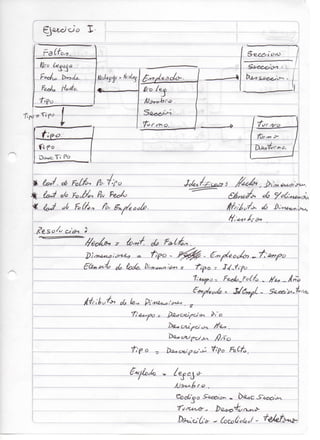 Ejercicio I.
Faltas.
Nro Legajo
Fecha Desde
Fecha Hasta
Tipo
Nrolegajo = Nroleg
Empleados.
Nro leg.
Nombre
Sección
Turno.
Seccion
Seccion
Descseccion.
Turno
Turno
DescTurno
Tipo = Tipo
Tipo.
Tipo
Desc Tipo
Cant. de Faltas Por Tipo
Cant. de Faltas Por Fecha
Cant. de Faltas Por Empleado.
Identificar: Hechos, Dimensiones
Elementos de
Atributos de Dimensiones
Resolucion:
Hechos = Cant. de Faltas.
Dimensiones = Tipo - Empleados - Tiempo
Elementos de cada Dimension = Tipo = Id.Tipo
Tiempo = Fecha_Falta - Mes - Año
Empleado = IdEmpl - Seccion - Turno
Atributos de las Dimensiones =
Tiempo = Descripcion Dia
Descripcion Mes.
Descripcion Año
Tipo = Descripcion Tipo Falta.
Empleado = Legajo
Nombre.
Codigo Seccion - Desc Seccion
Turno - DescTurno
Domicilio - Localidad - Telefono